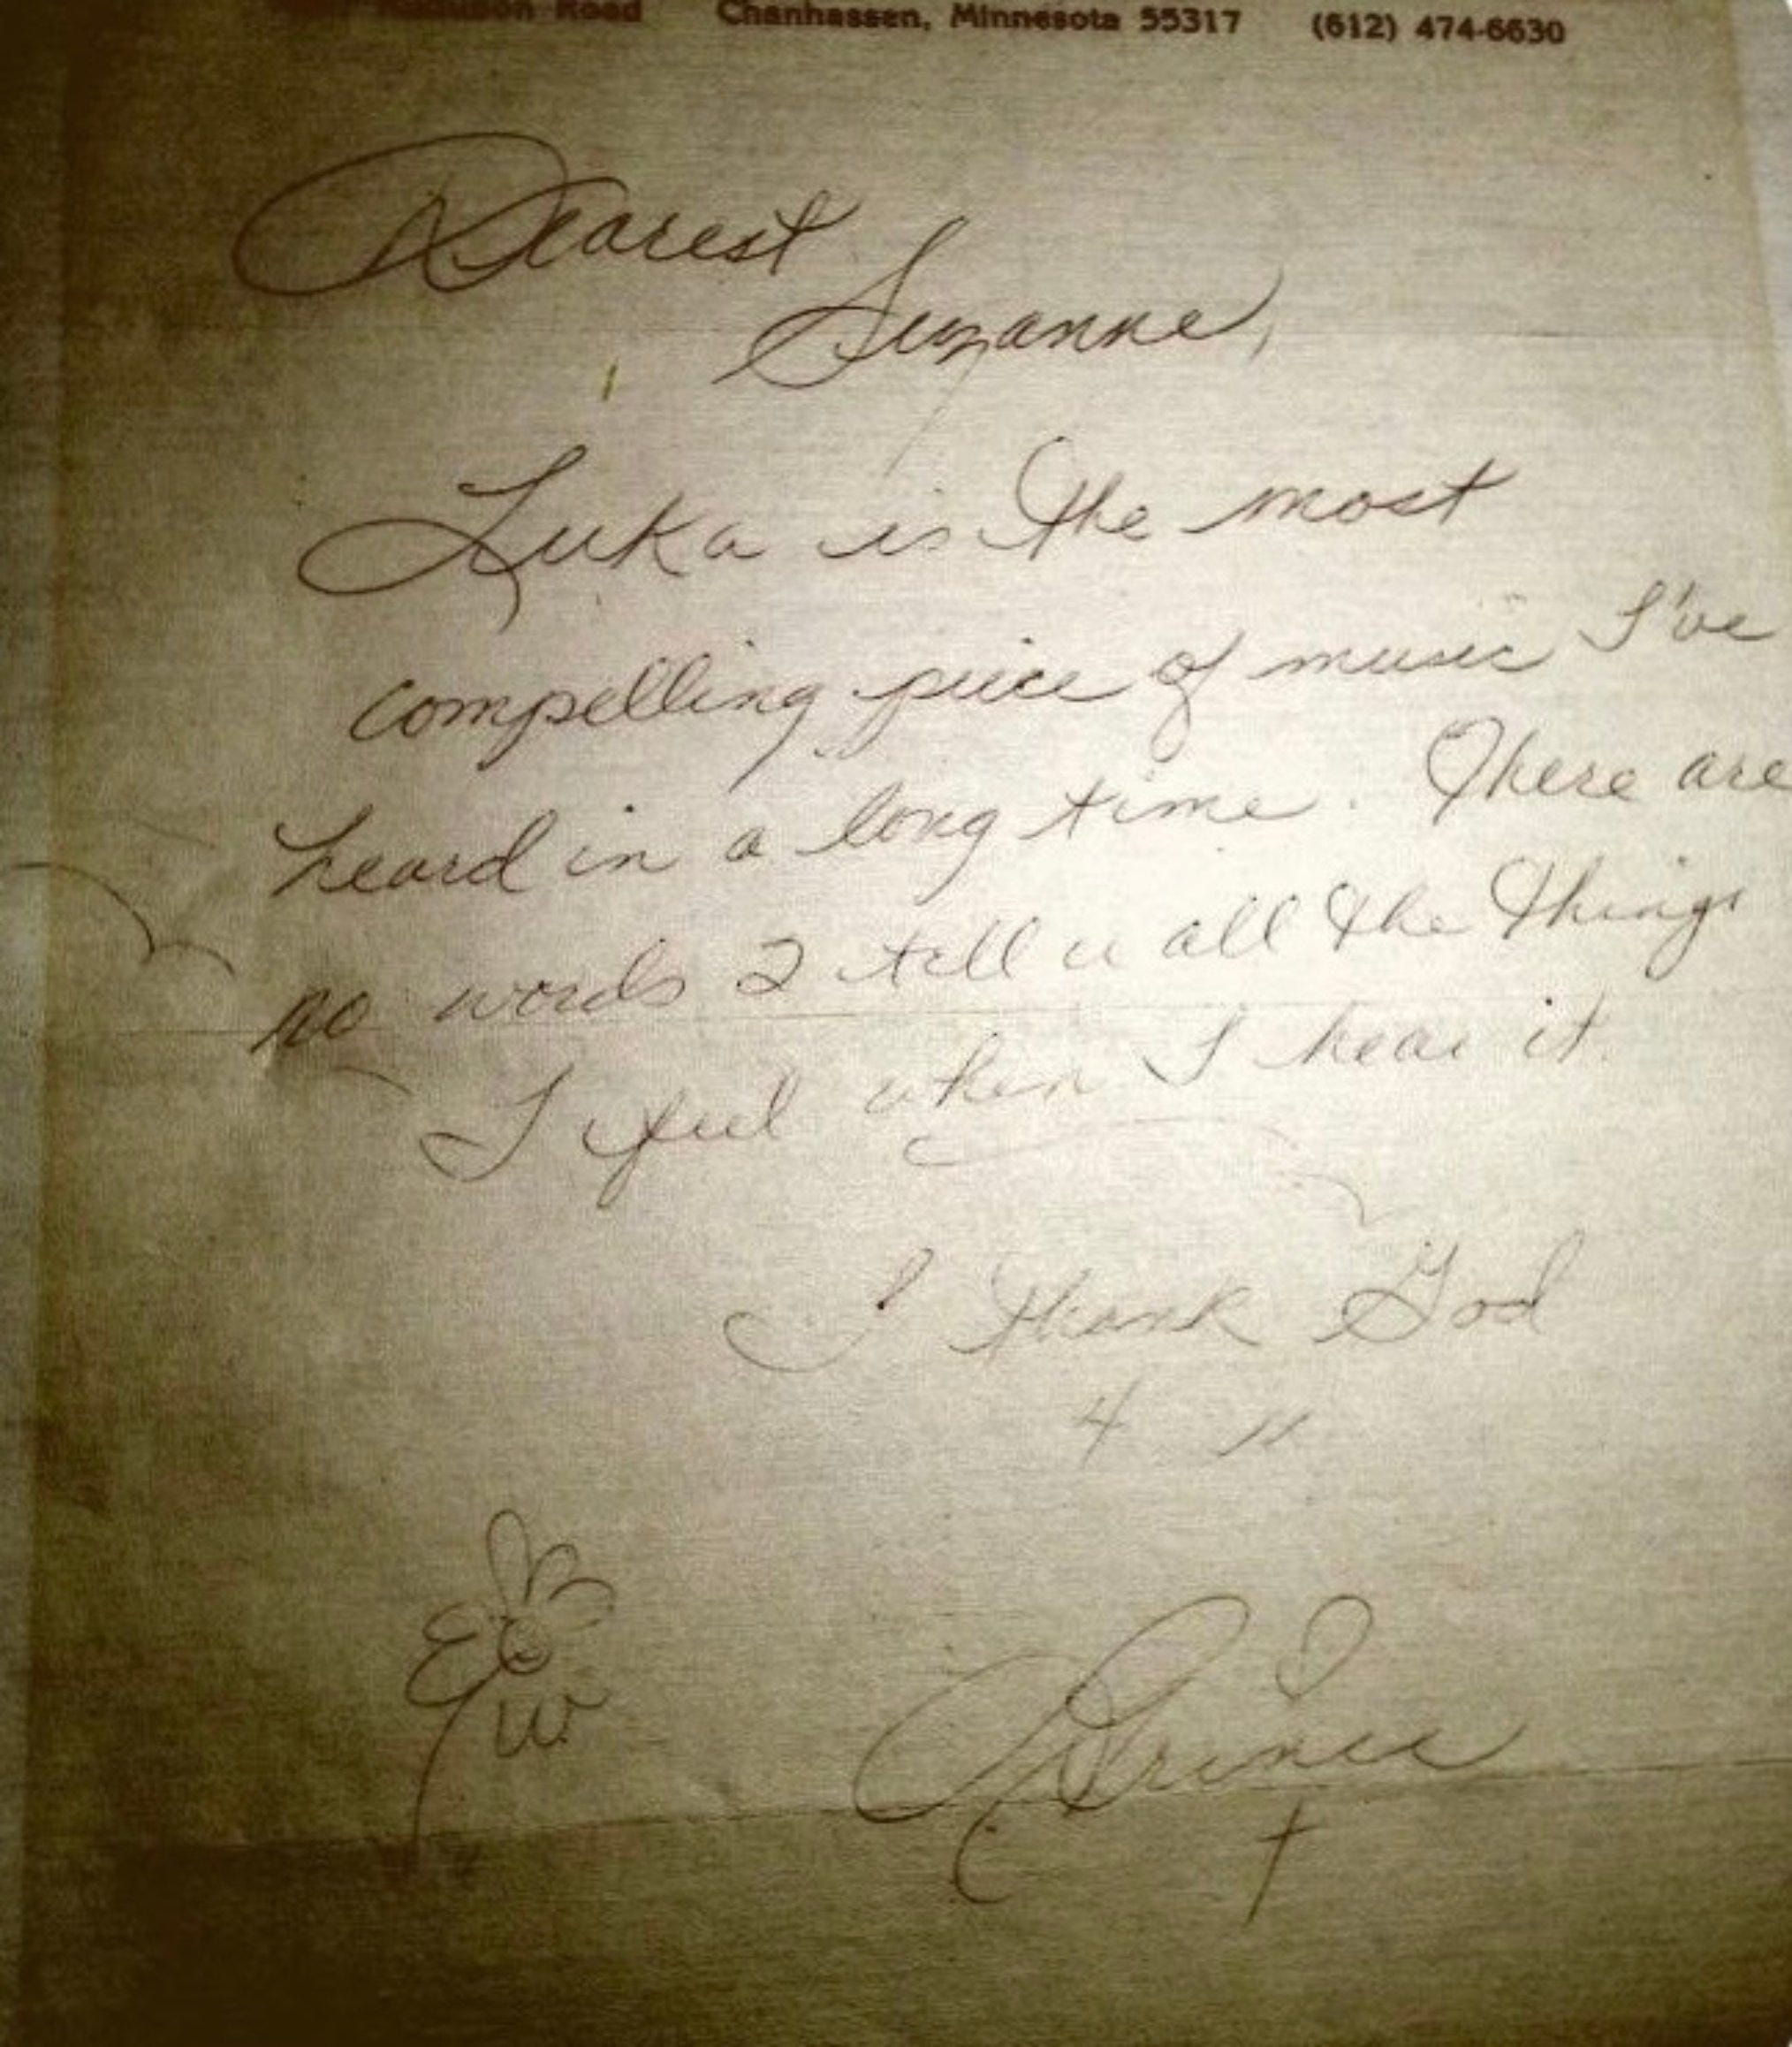 Audubon Road Chanhassen, Minnesota 55317 (612) 474-6630
Dearest
Suzanne,
Luka is the most
compelling piece of music I've
heard in a long time. There are
no words 2 tell u all the things
I feel when I hear it.
I thank God
4 u
Prince